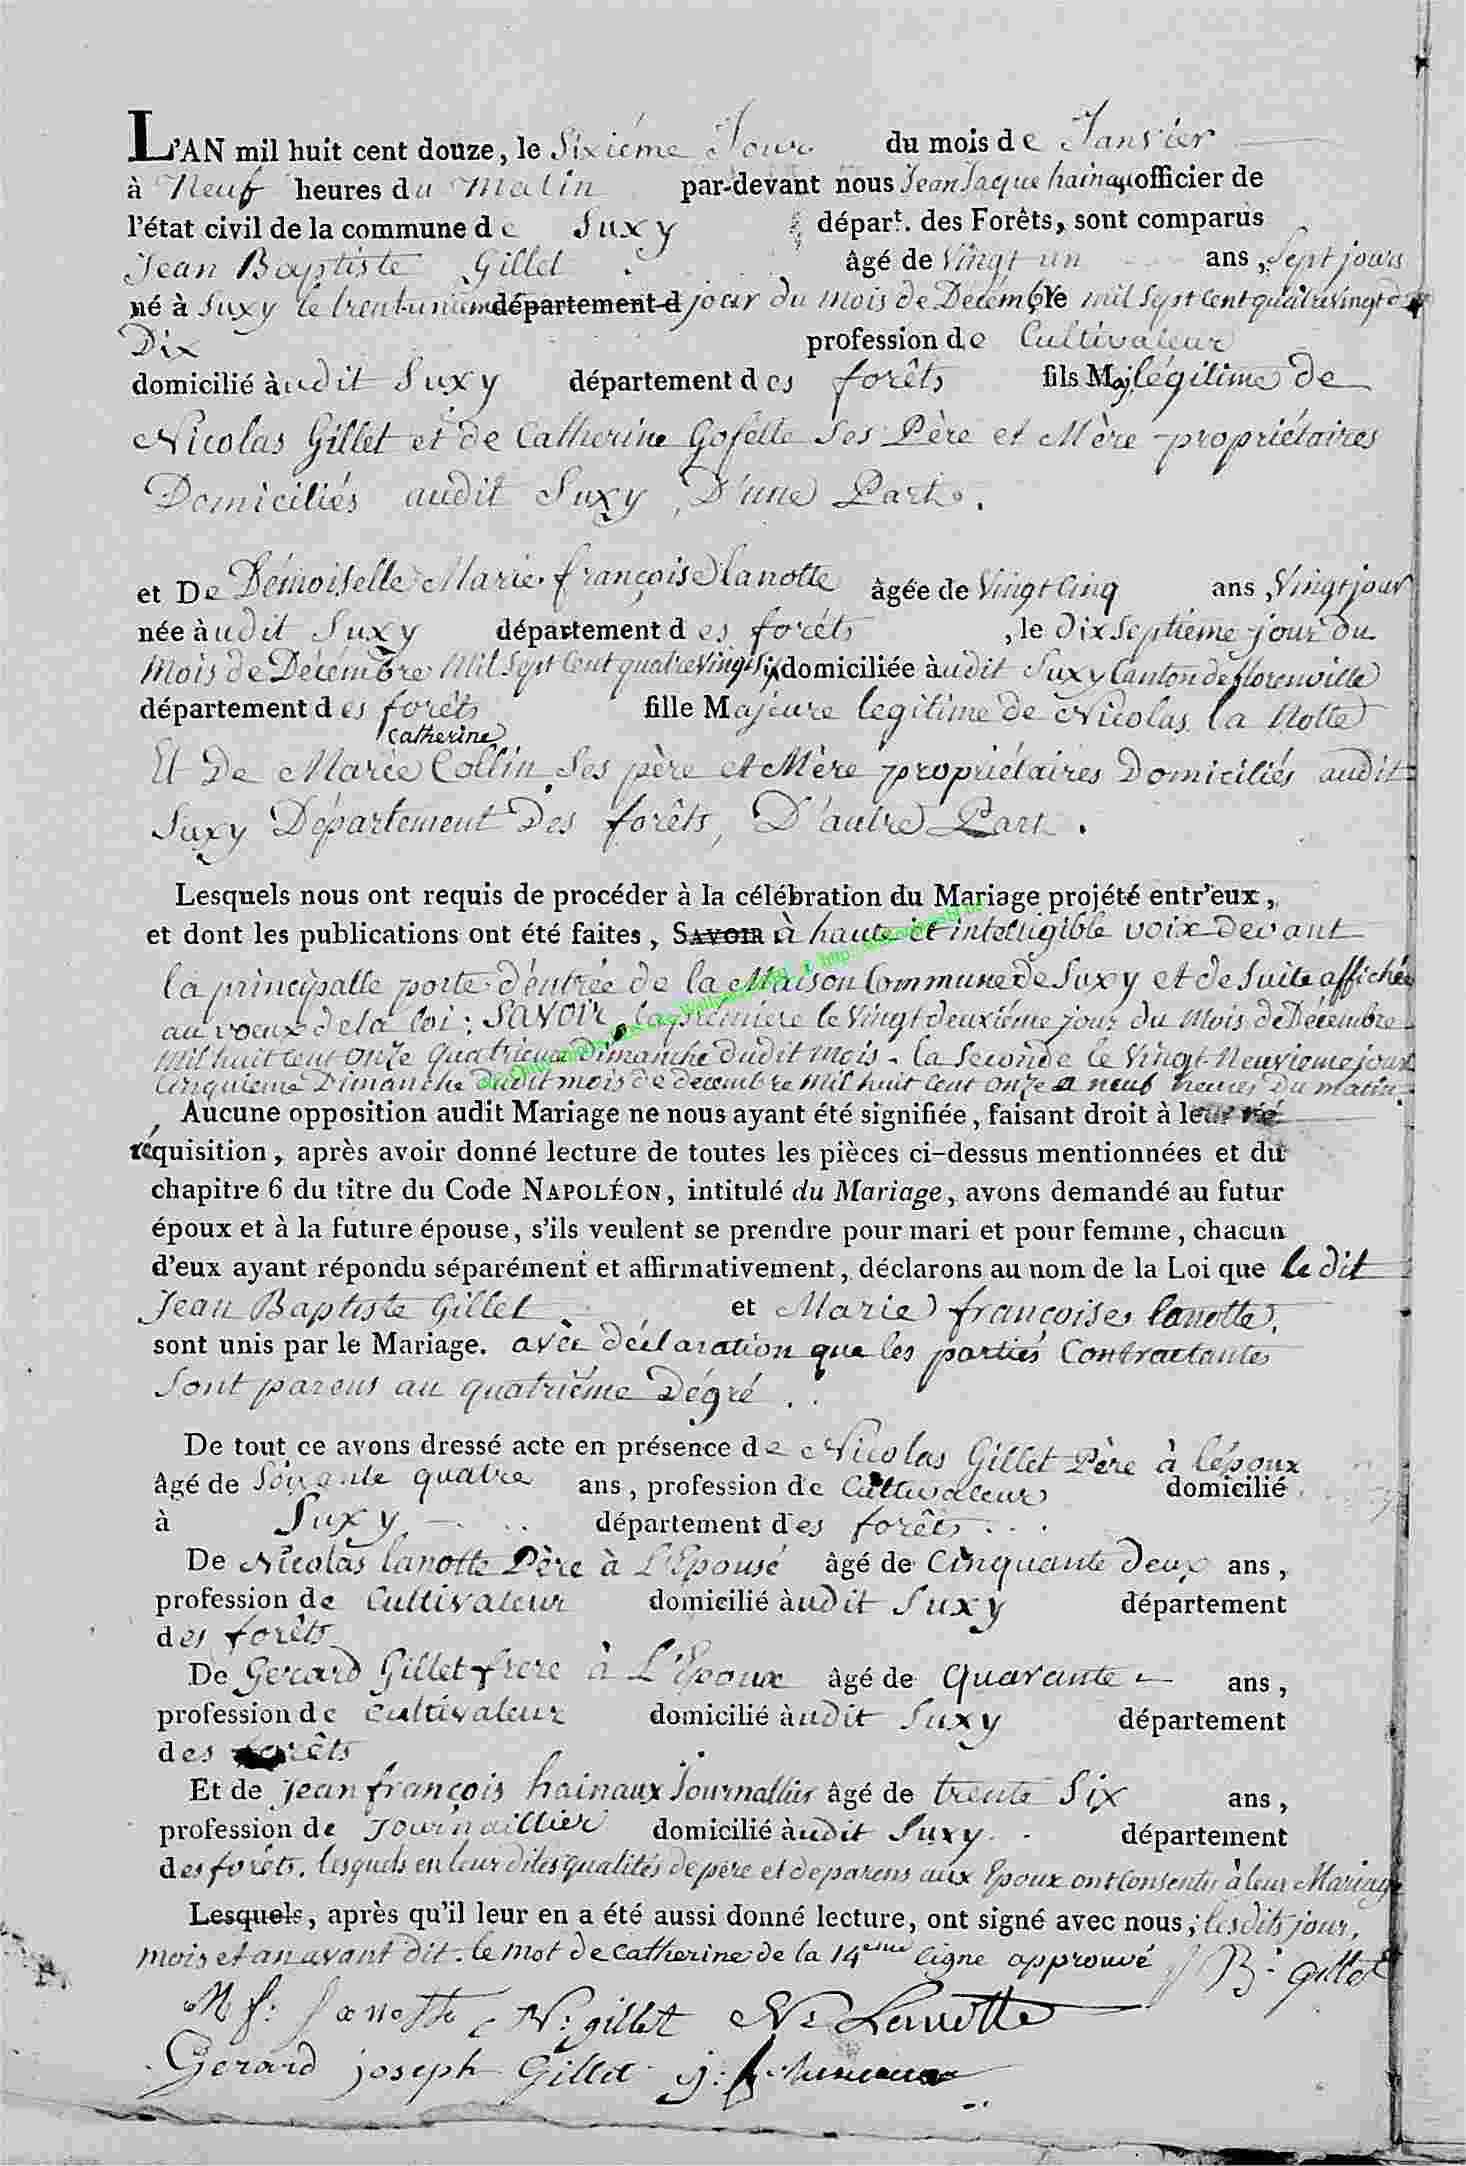 L'AN mil huit cent douze, le Sixiéme Jour du mois de Janvier
à Neuf heures du Matin par-devant nous Jean Jaque hainaux officier de
l'état civil de la commune de Suxy départ. des Forêts, sont comparus
Jean Baptiste Gillet âgé de Vingt un ans, Sept jours
né à Suxy le trentuniem département d jour du mois de Decembre mil Sept Cent quatrevingt
Dix profession de Cultivateur
domicilié audit Suxy département des forêts fils Maj. légitime de
Nicolas Gillet et de Catherine Gofette Ses Père et Mère propriétaires
Domiciliés audit Suxy, D'une Part.
et De Démoiselle Marie françoise lanotte âgée de Vingt Cinq ans, Vingt jour
née audit Suxy département des foréts, le dix Septieme jour du
Mois de Décembre Mil Sept Cent quatre Vingt Six domiciliée audit Suxy Canton de florenville
département des forêts fille Majeure legitime de Nicolas la Notte
Catherine
Et De Marie Collin Ses père et Mère propriétaires Domiciliés audit
Suxy Département Des forêts, D'autre Part.
Lesquels nous ont requis de procéder à la célébration du Mariage projété entr'eux,
et dont les publications ont été faites, SAVOIR à haute et inteligible voix devant
la principalle porte d'entrée de la Maison Commune de Suxy et de Suite affichée
au voeux de la loi; SAVOIR, la première le Vingt deuxiéme jour du Mois de Décembre
Mil huit Cent Onze quatrieme Dimanche dudit mois. la Seconde le Vingt Neuvieme jour
Cinquieme Dimanche dudit mois de decembre Mil huit Cent Onze a neuf heures Du matin.
Aucune opposition audit Mariage ne nous ayant été signifiée, faisant droit à leur ré
réquisition, après avoir donné lecture de toutes les pièces ci-dessus mentionnées et du
chapitre 6 du titre du Code NAPOLÉON, intitulé du Mariage, avons demandé au futur
époux et à la future épouse, s'ils veulent se prendre pour mari et pour femme, chacun
d'eux ayant répondu séparément et affirmativement, déclarons au nom de la Loi que le dit
Jean Baptiste Gillet et Marie françoise lanotte,
sont unis par le Mariage. avec déclaration que les parties Contractantes
Sont parens au quatriême Dégré.
De tout ce avons dressé acte en présence de Nicolas Gillet Père à l'époux
âgé de Soixante quatre ans, profession de Cultivateur domicilié
à Suxy département des forêts
De Nicolas lanotte Père à L'Epouse âgé de Cinquante Deux ans,
profession de Cultivateur domicilié audit Suxy département
des forêts
De Gerard Gillet frere à L'Epoux âgé de Quarante ans,
profession de Cultivateur domicilié audit Suxy département
des forêts
Et de Jean françois hainaux Journallier âgé de trente Six ans,
profession de Journaillier domicilié audit Suxy département
des forêts. lesquels en leur dites qualités de père et de parens aux Epoux ont Consentu à leur Mariage
Lesquels, après qu'il leur en a été aussi donné lecture, ont signé avec nous, lesdits jour,
mois et an avant dit. le mot de Catherine de la 14eme ligne approuvé J B. gillet
M f. Lanotte N. gillet N. Lanotte
Gerard joseph Gillet